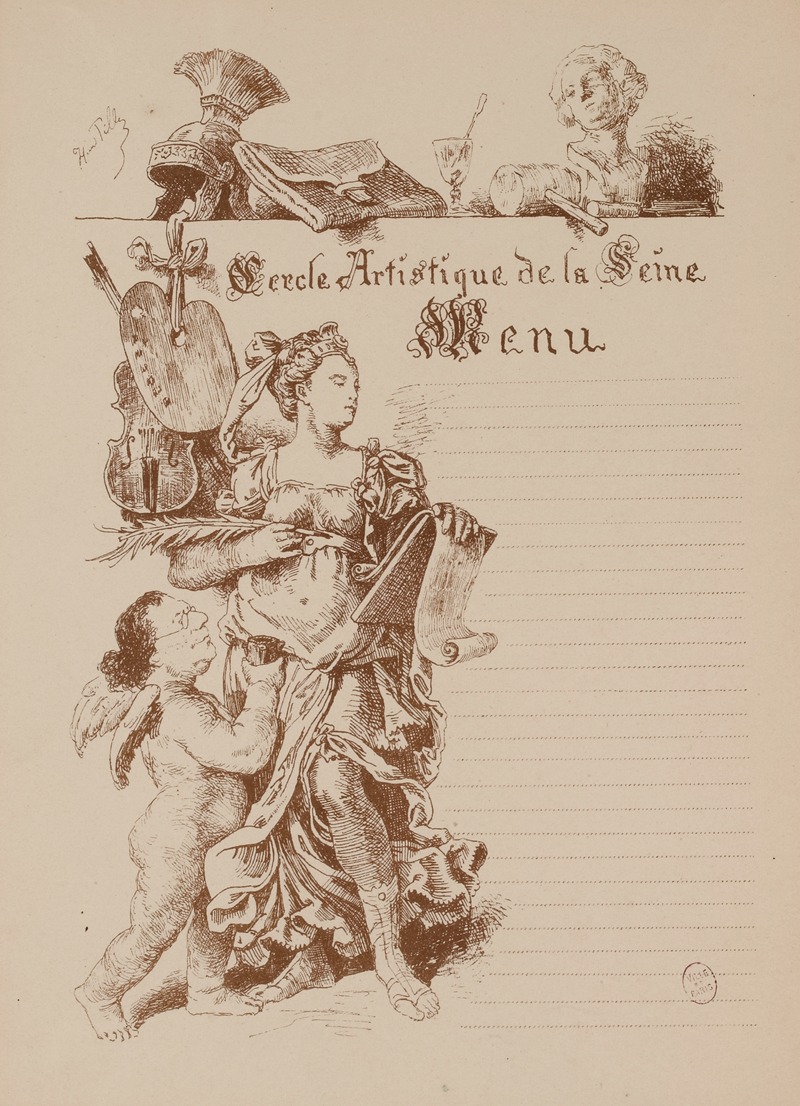 Hri Pille
Cercle Artistique de la Seine
Menu
VILLE
DE
PARIS